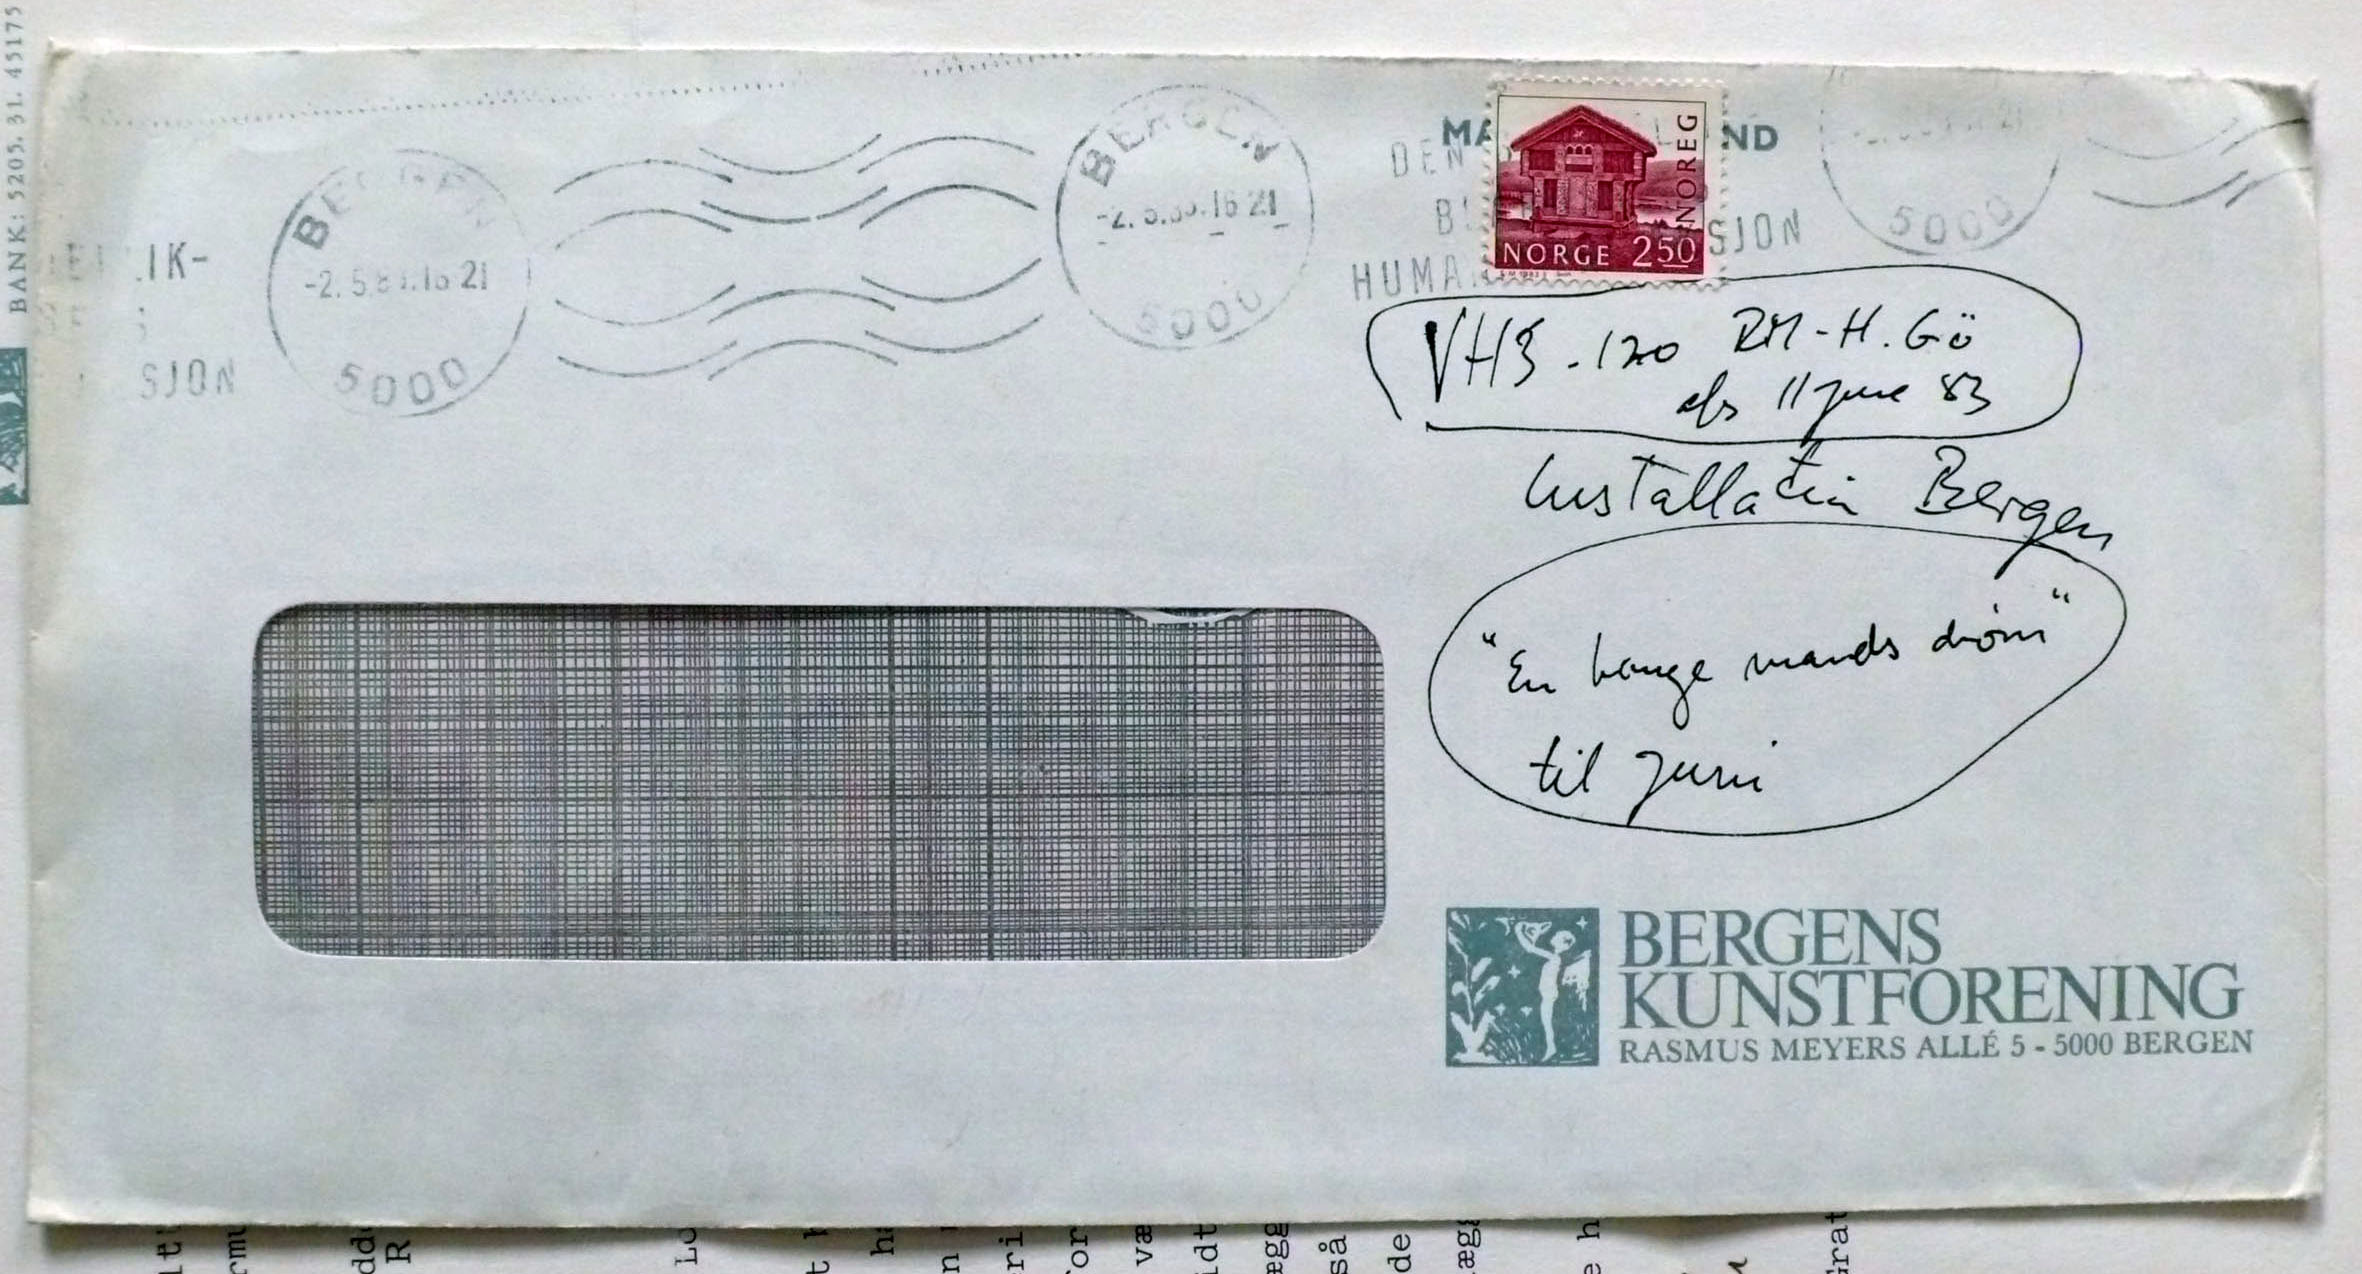 BANK: 5205. 31. 45175
IK-
SJON
BERGEN
-2. 5.8 .16 21
5000
BERGEN
-2. 5.83.16 21
5000
DEN
SJON
NORGE 250
NOREG
5000
VHS - 120 RM-H. Gö
afs 11 june 83
Installation Bergen
"En bange mands drøm"
til juni
BERGENS
KUNSTFORENING
RASMUS MEYERS ALLÉ 5 - 5000 BERGEN